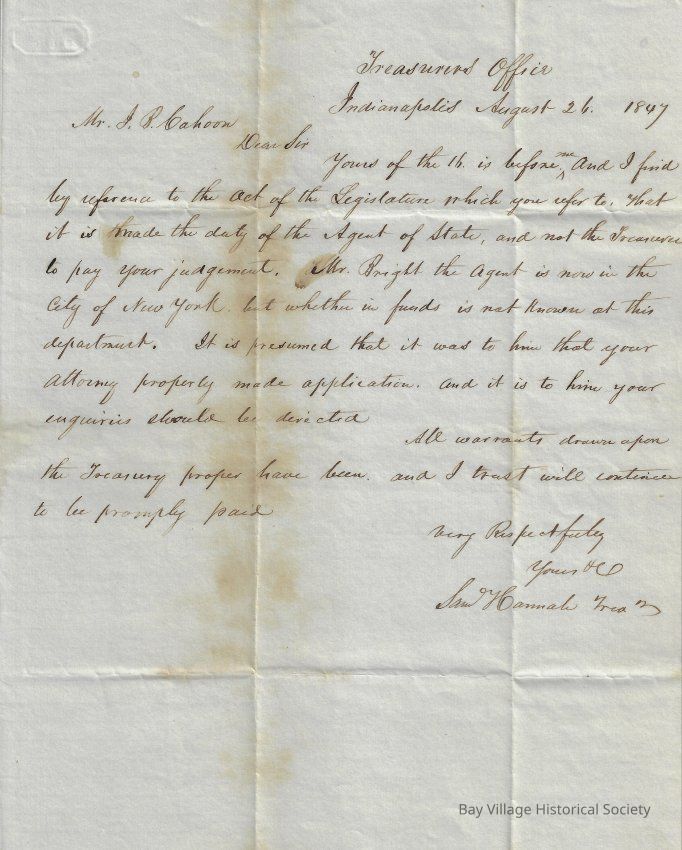 Treasurers Office
Indianapolis August 26. 1847
Mr. J. P. Cahoon
Dear Sir
Yours of the 16. is before me, And I find
by reference to the act of the Legislature which you refer to, that
it is made the duty of the Agent of State, and not the Treasurer
to pay your judgement. Mr. Bright the Agent is now in the
City of New York. but whether in funds is not known at this
department. It is presumed that it was to him that your
attorny properly made application. and it is to him your
enquiries should be directed
All warrants drawn upon
the Treasury proper have been. and I trust will continue
to be promply paid
Very Respectfuley
Yours &C
Saml Hannah Treasr
Bay Village Historical Society